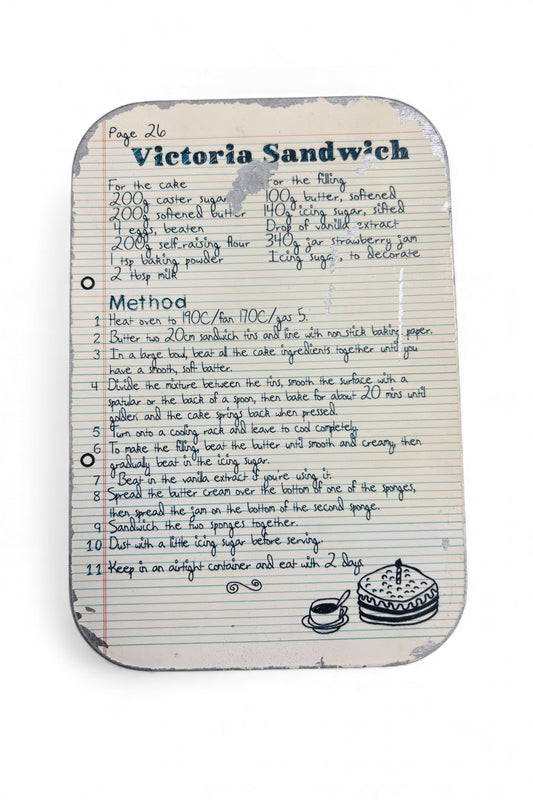 Page 26
Victoria Sandwich
For the cake
200g caster sugar
200g softened butter
4 eggs, beaten
200g self-raising flour
1 tsp baking powder
2 tbsp milk
For the filling
100g butter, softened
140g icing sugar, sifted
Drop of vanilla extract
340g jar strawberry jam
Icing sugar, to decorate
Method
1 Heat oven to 190C/fan 170C/gas 5.
2 Butter two 20cm sandwich tins and line with non-stick baking paper.
3 In a large bowl, beat all the cake ingredients together until you
have a smooth, soft batter.
4 Divide the mixture between the tins, smooth the surface with a
spatular or the back of a spoon, then bake for about 20 mins until
golden and the cake springs back when pressed.
5 Turn onto a cooling rack and leave to cool completely.
6 To make the filling, beat the butter until smooth and creamy, then
gradualy beat in the icing sugar.
7 Beat in the vanilla extract if you're using it.
8 Spread the butter cream over the bottom of one of the sponges,
then spread the jam on the bottom of the second sponge.
9 Sandwich the two sponges together.
10 Dust with a little icing sugar before serving.
11 Keep in an airtight container and eat with 2 days.